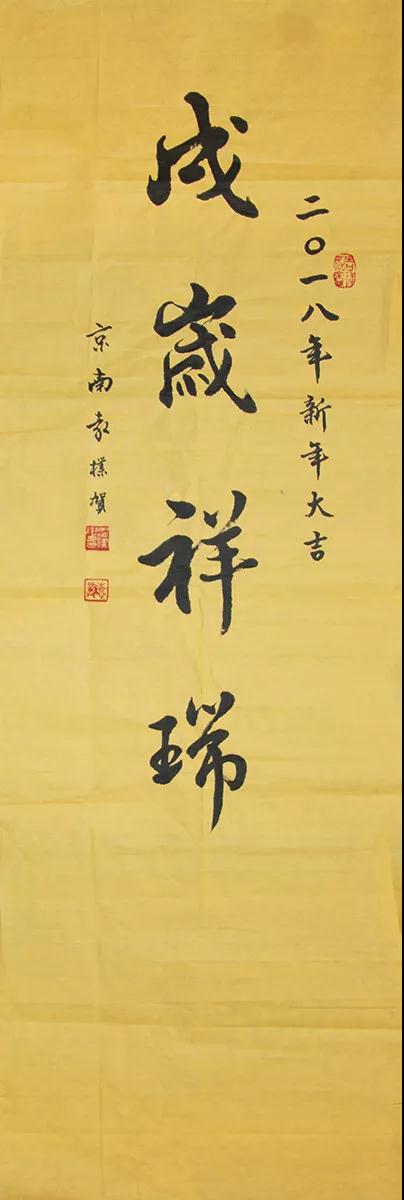 二〇一八年新年大吉
戌嵗祥瑞
京南敖樸賀